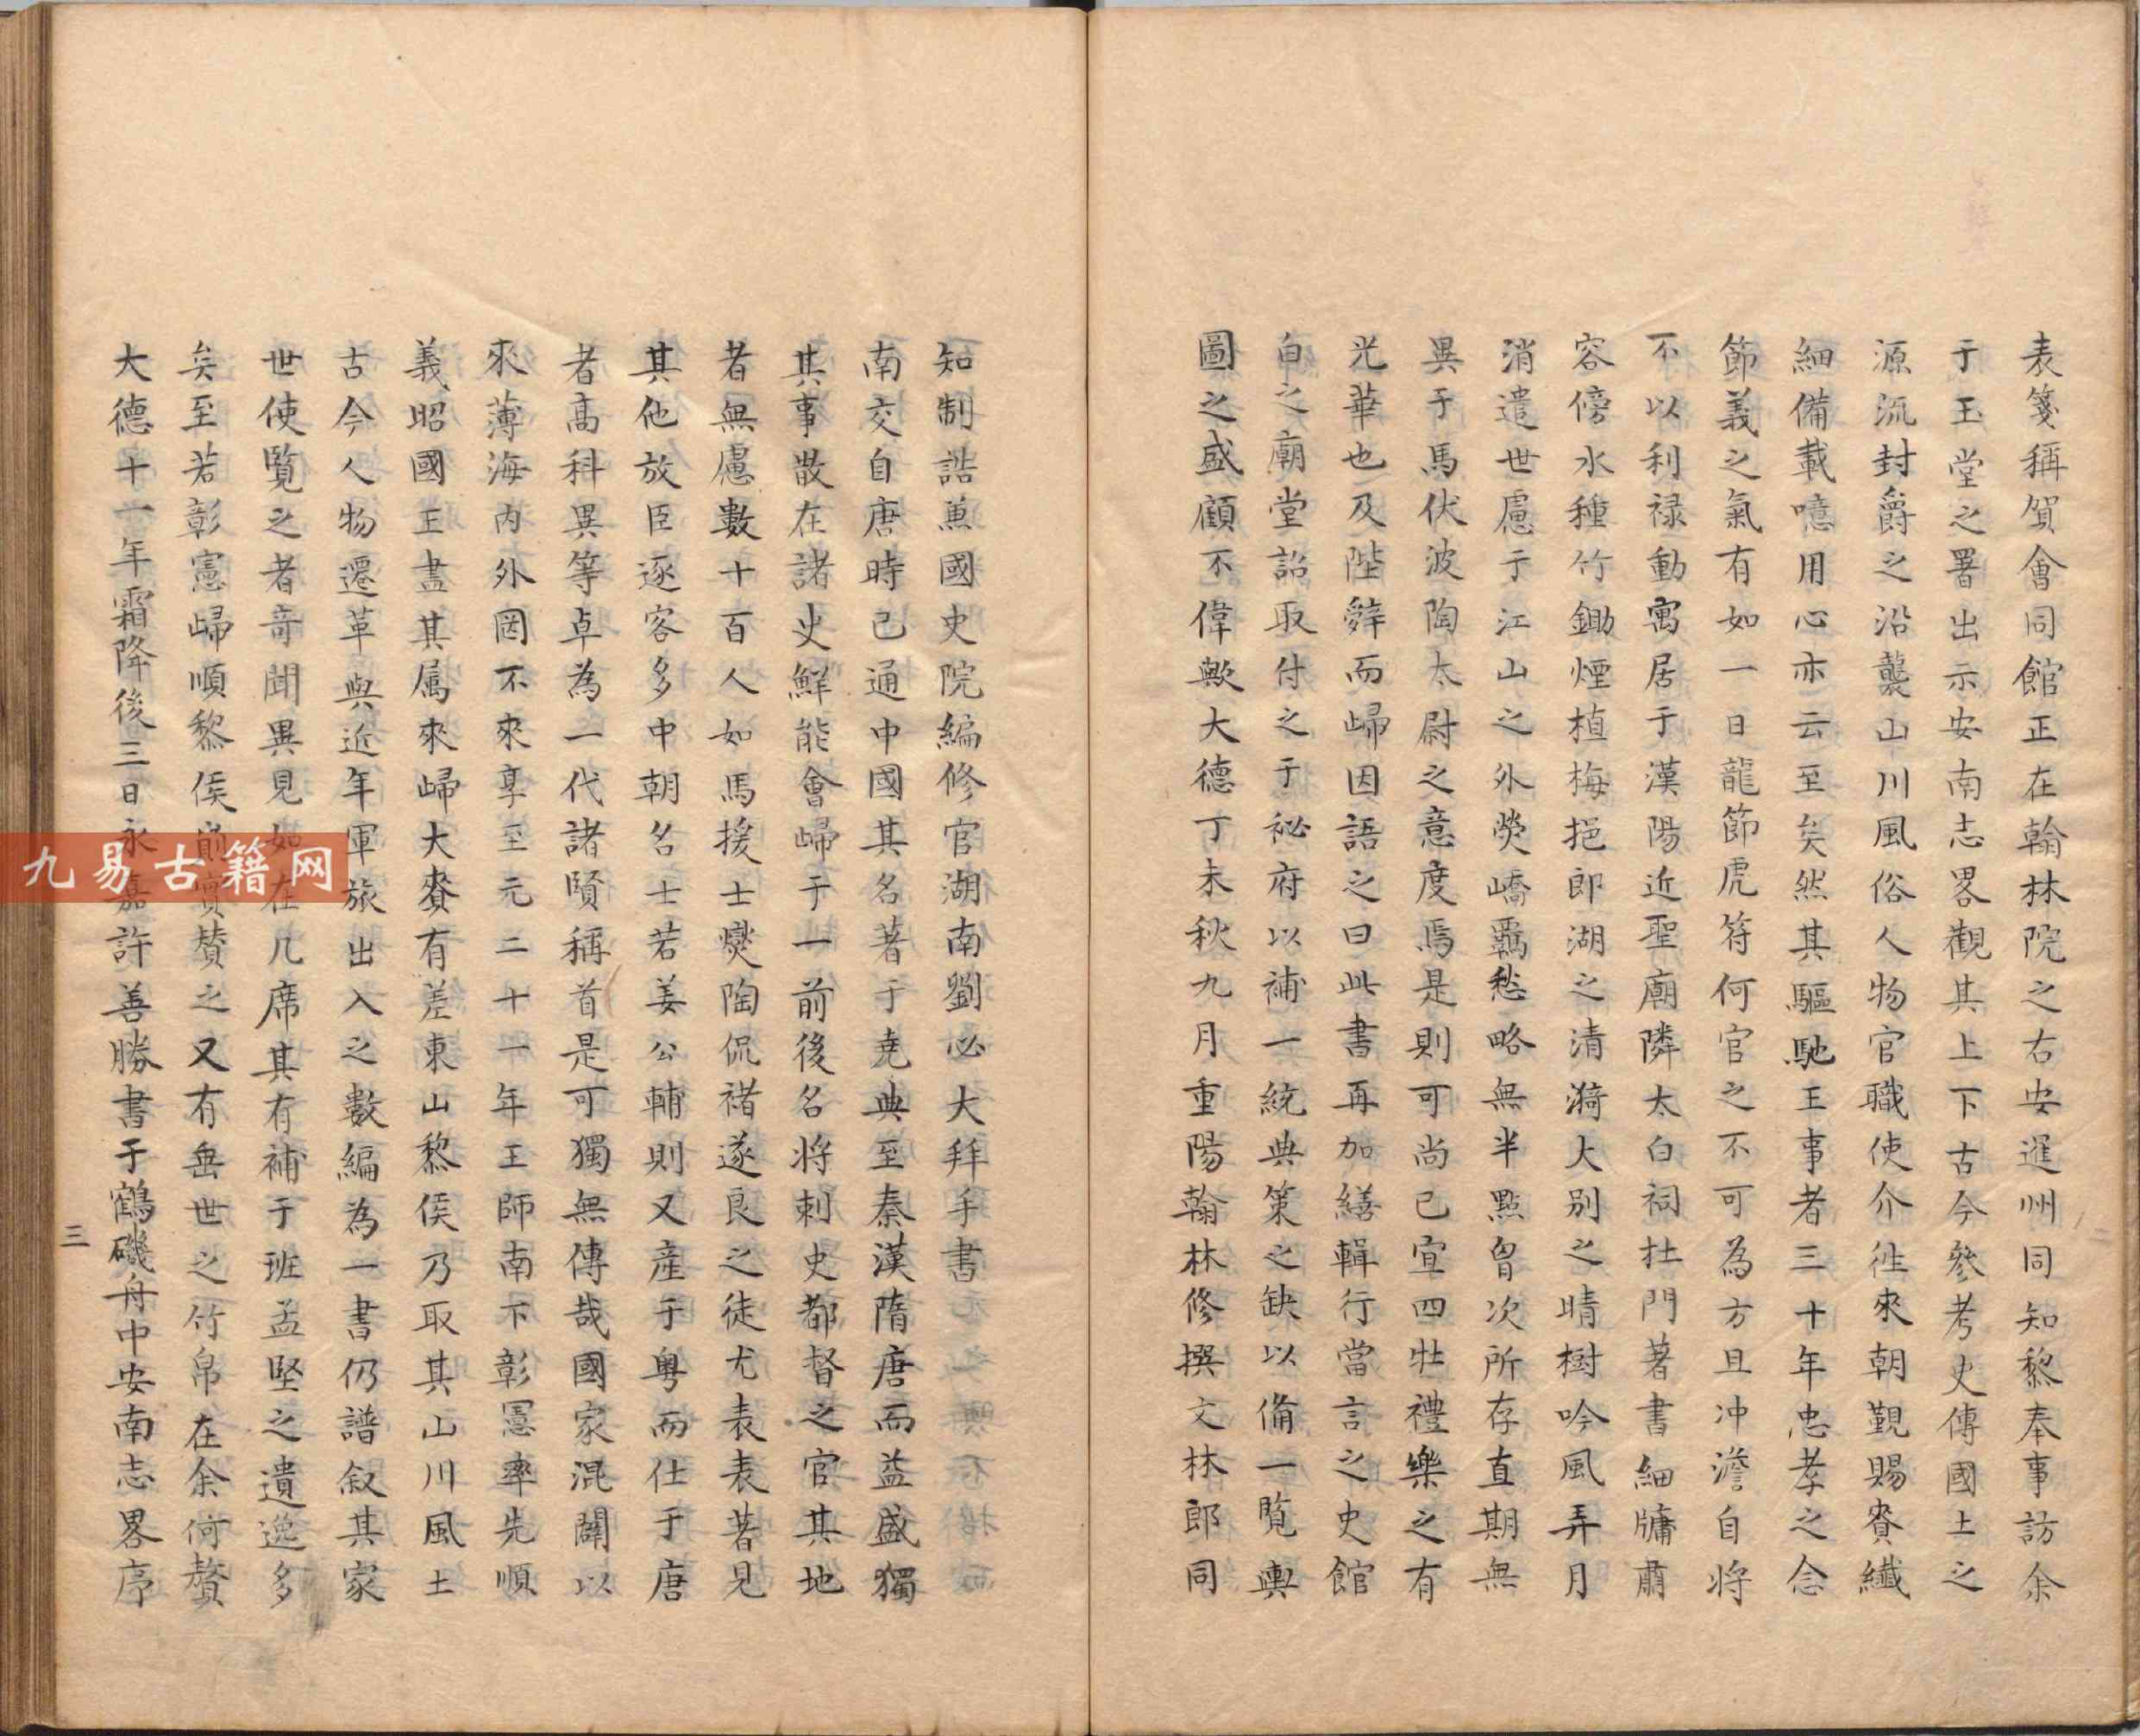 表箋稱賀會同館正在翰林院之右安暹州同知黎奉事訪余
于玉堂之署出示安南志畧觀其上下古今參考史傳國土之
源流封爵之沿襲山川風俗人物官職使介徃來朝覲賜賚纎
細備載噫用心亦云至矣然其驅馳王事者三十年忠孝之念
節義之氣有如一日龍節虎符何官之不可為方且冲澹自将
不以利禄動寓居于漢陽近聖廟隣太白祠杜門著書細牗肅
容傍水種竹鋤煙植梅挹郎湖之清漪大別之晴樹吟風弄月
消遣世慮于江山之外熒嶠覊愁略無半點胷次所存直期無
異于馬伏波陶太尉之意度焉是則可尚已宜四牡禮樂之有
光華也及陛辭而歸因語之曰此書再加繕輯行當言之史館
白之廟堂詔取付之于祕府以補一統典策之缺以備一覧輿
圖之盛顧不偉歟大德丁未秋九月重陽翰林修撰文林郎同
知制誥蒹國史院編修官湖南劉必大拜手書
南交自唐時已通中國其名著于堯典至秦漢隋唐而益盛獨
其事散在諸史鮮能會歸于一前後名将刺史都督之官其地
者無慮數十百人如馬援士燮陶侃褚遂良之徒尤表表著見
其他放臣逐客多中朝名士若姜公輔則又產于粵而仕于唐
者高科異等卓為一代諸賢稱首是可獨無傳哉國家混闢以
來薄海内外罔不來享至元二十一年王師南下彰憲率先順
義昭國王盡其属來歸大賚有差東山黎侯乃取其山川風土
古今人物遷革與近年軍旅出入之數編為一書仍譜叙其家
世使覧之者竒聞異見如在几席其有補于班孟堅之遺逸多
矣至若彰憲歸順黎侯前實賛之又有無世之竹帛在余何贅
大德十一年霜降後三日永嘉許善勝書于鶴磯舟中安南志畧序
三
九易古籍网